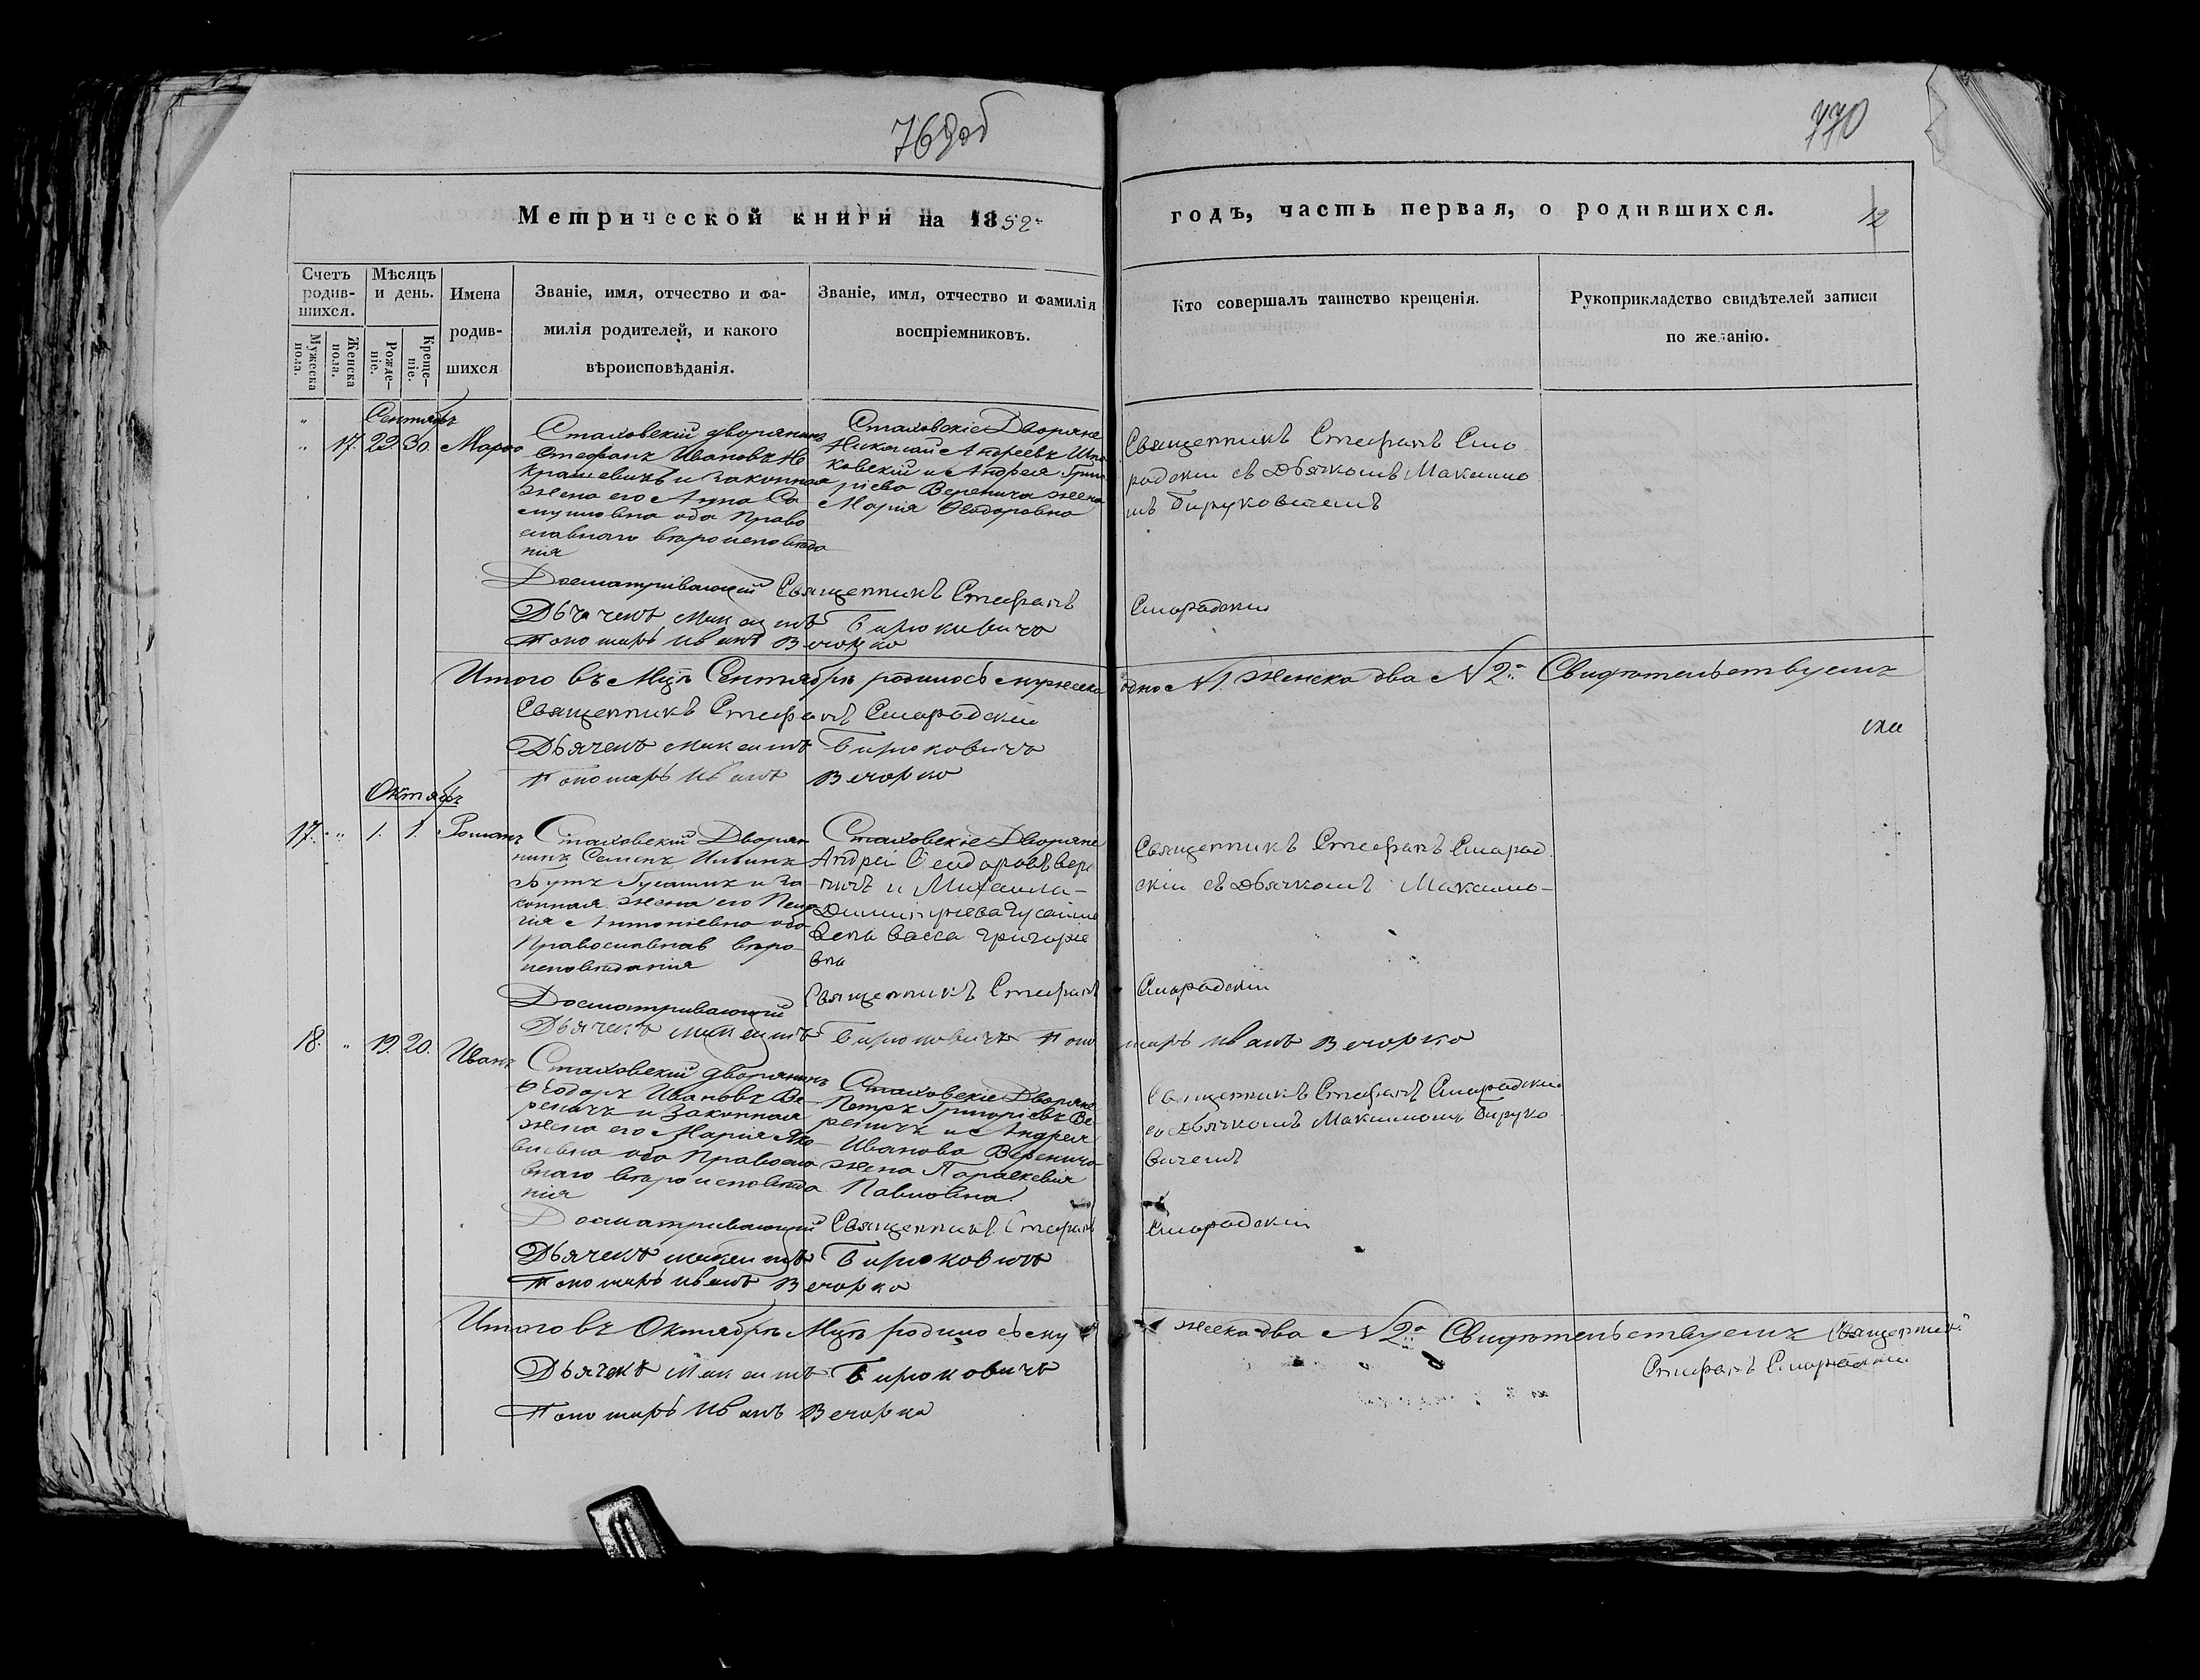 769об
770
Метрической книги на 1852
годъ, часть первая, о родившихся.
12
Счетъ родив-шихся.
Мужеска пола.
Женска пола.
Мѣсяцъ и день.
Рожде-ніе.
Креще-ніе.
Имена
родив-
шихся
Званіе, имя, отчество и фа-
милія родителей, и какого
вѣроисповѣданія.
Званіе, имя, отчество и фамилія
воспріемниковъ.
Кто совершалъ таинство крещенія.
Рукоприкладство свидѣтелей записи
по желанію.
Сентябрь
17. 22. 30.
Стаховскій дворянинъ
Стефанъ Ивановъ Не
крашевичъ и законная
жена его Анна Са
муиловна оба Право
славнаго вѣроисповѣда
нія
Стаховскіе Дворяне
Николай Андреевъ
ковскій и Андрея Григо
ріева Веренича жена
Марія Ѳеодоровна
Священникъ Стефанъ Смо
родскій съ Дьячкомъ Максимо
мъ Бируковичемъ
Досматривающій Священникъ Стефанъ
Смародскій
Дьячекъ Максимъ Бирюковичъ
Пономарь Иванъ Вечорко
Итого въ Мцѣ Сентябрѣ родилось мужеска одно №1. женска два №2. Свидѣтельствуемъ
Священникъ Стефанъ Смародскій
Дьячекъ Максимъ Бирюковичъ
Пономарь Иванъ Вечорко
Октябрь
17. „ 1. 1. Романъ
Стаховскій Дворян
нинъ Семенъ Ильинъ
Бутъ Гусакъ и за
конная жена его Пела
гія Антоніевна оба
Православнаго вѣро
исповѣданія
Стаховскіе Дворяне
Андрей Ѳеодоровъ Вере
ничъ и Михаила
Димитріева
жена Васса Григорие
вна
Священникъ Стефанъ Смарод
скій съ Дьячкомъ Максимо-
Досматривающій
Священникъ Стефанъ
Смародскій
Дьячекъ Максимъ Бирюковичъ Пономарь Иванъ Вечорко
18. „ 19. 20. Иванъ
Стаховскій дворянинъ
Ѳеодоръ Ивановъ Ве
реничъ и Законная
жена его Марія Яко
влевна оба Правосла
внаго вѣроисповѣда
нія
Стаховскіе Дворяне
Петръ Григоріевъ Ве
реничъ и Андрея
Иванова Веренича
жена Параскевія
Павловна
Священникъ Стефанъ Смародскій
со Дьячкомъ Максимомъ Бируко
вичемъ
Досматривающій Священникъ Стефанъ
Смародскій
Дьячекъ Максимъ Бирюковичъ
Пономарь Иванъ Вечорко
Итого въ Октябрѣ Мцѣ родилось му
жеска два №2. Свидѣтельствуемъ Священникъ
Стефанъ Смародскій
Дьячекъ Максимъ Бирюковичъ
Пономарь Иванъ Вечорка